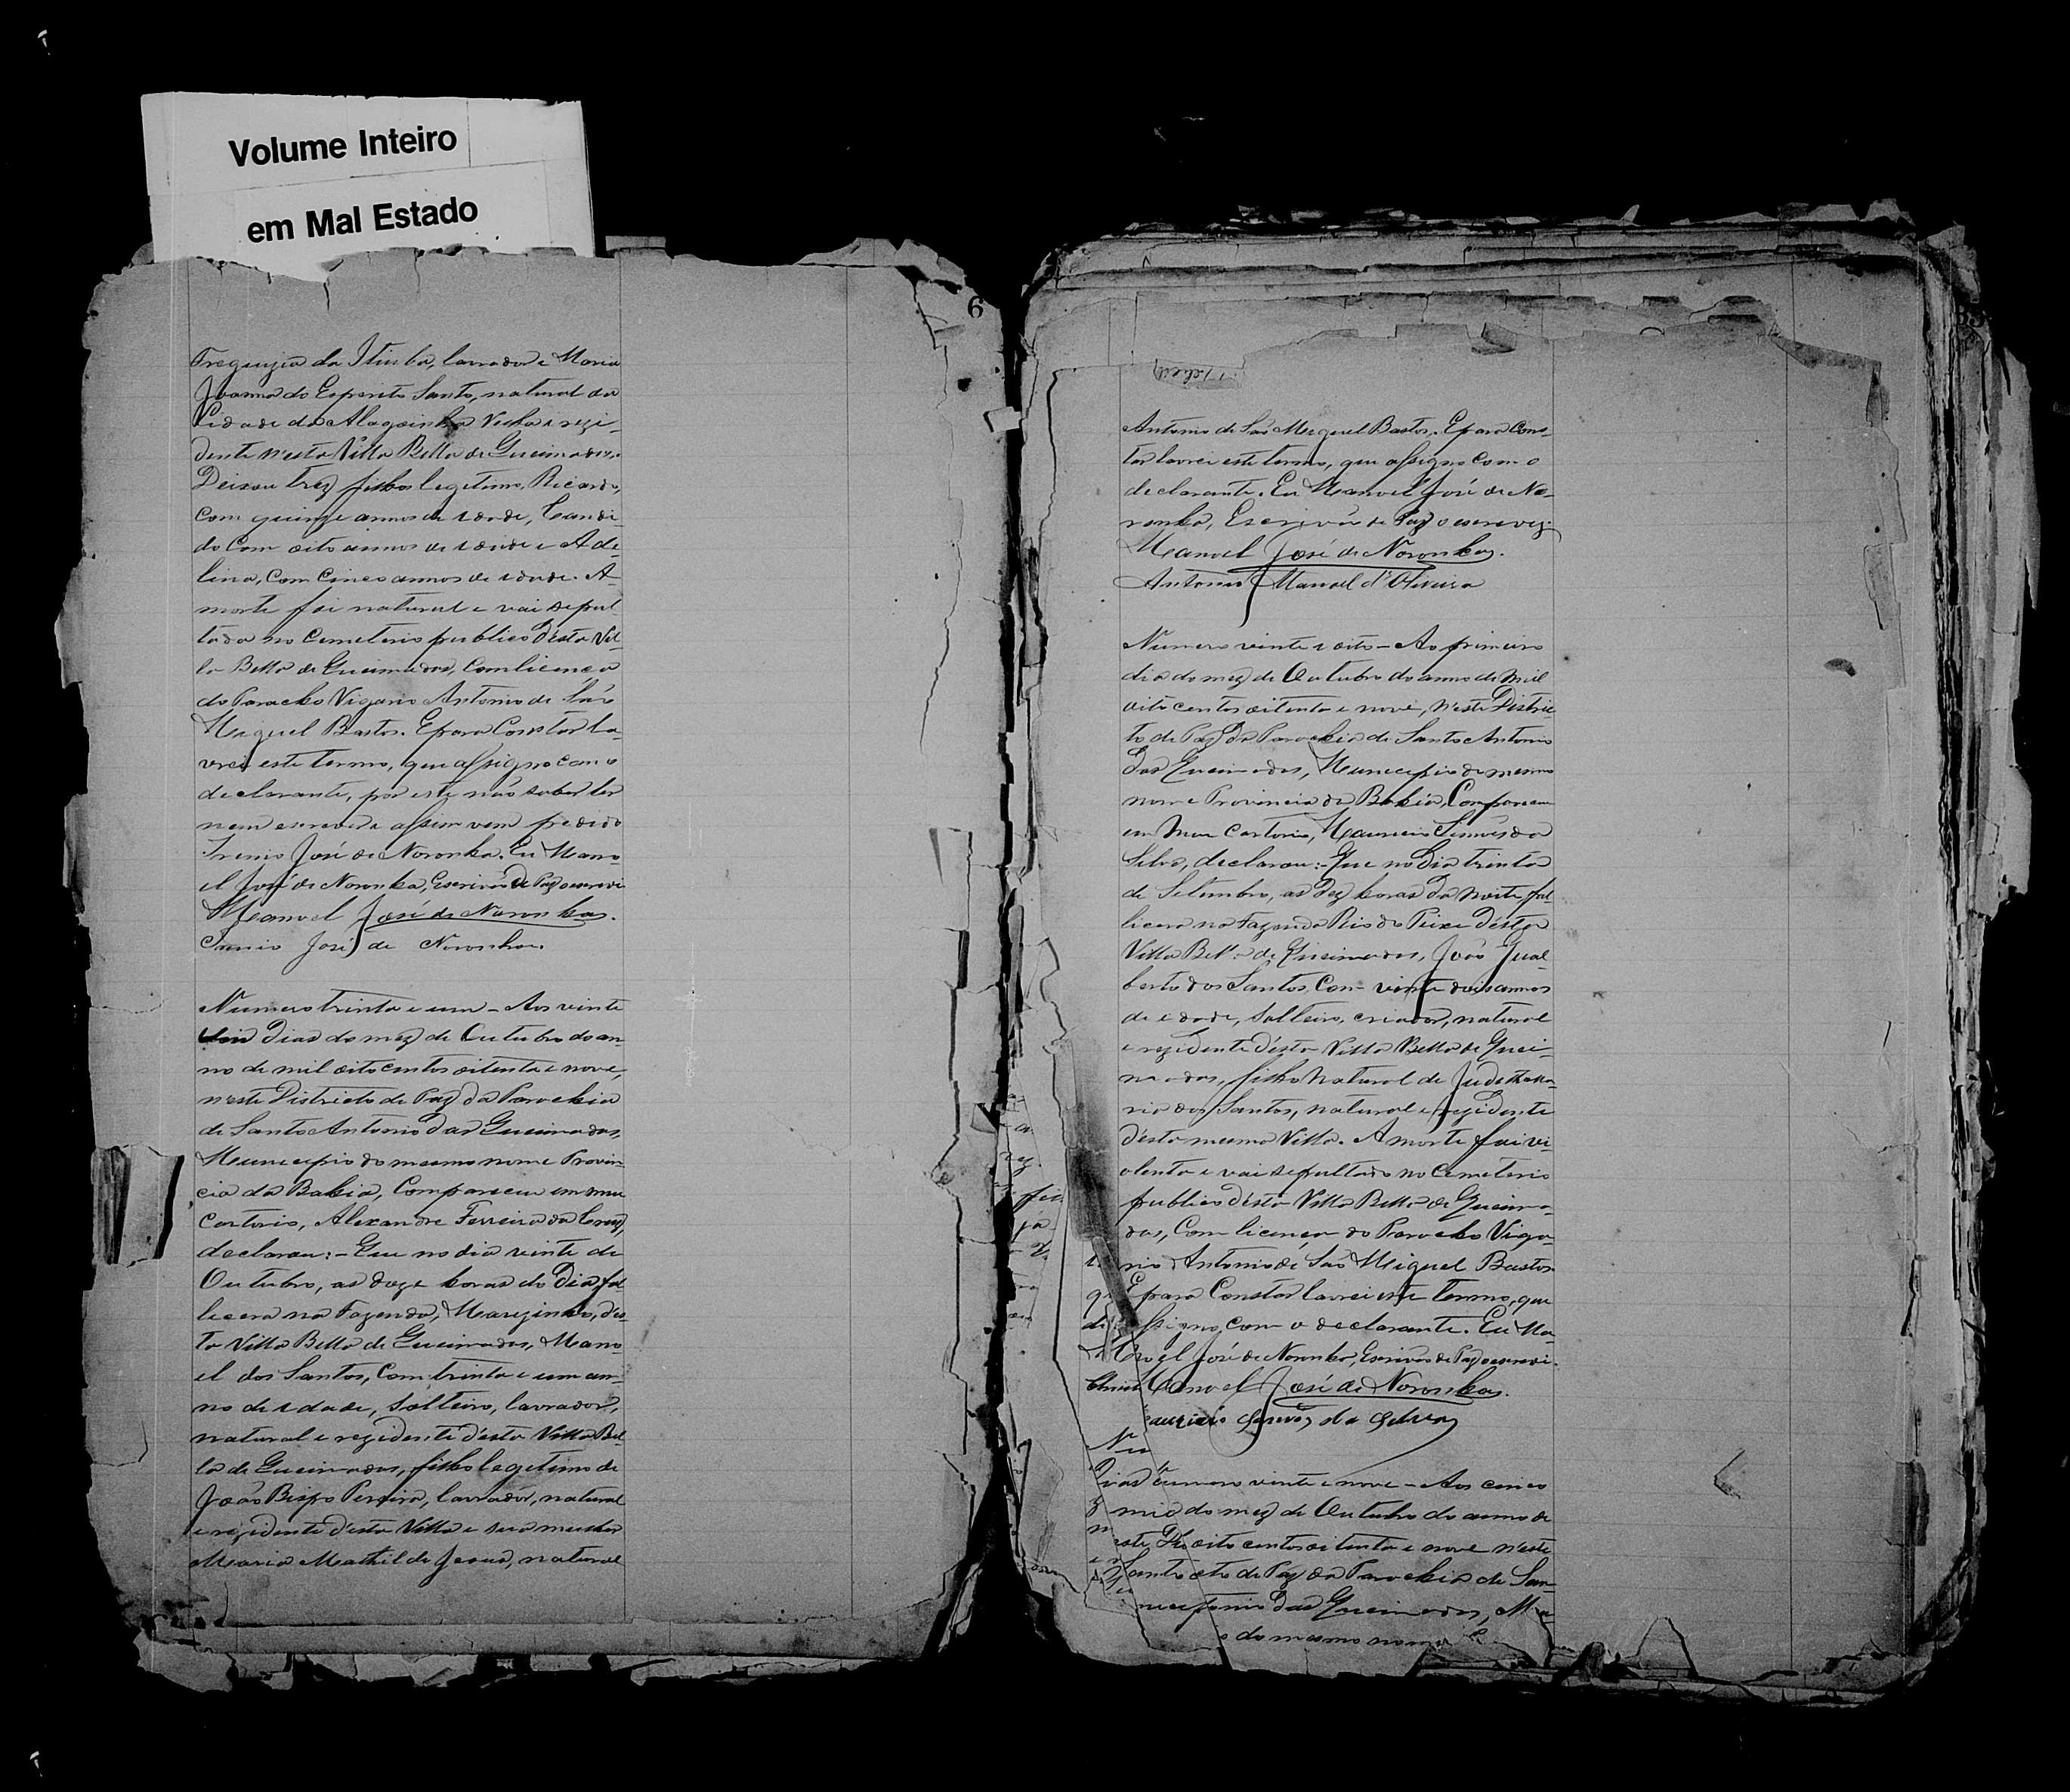 Volume Inteiro
em Mal Estado
6
Freguezia da Itiuba, lavrador e Maria
Joanna do Espirito Santo, natural da
Cidade da Alagoinha Velha e rezi-
dente n'esta Villa Bella de Queimadas.
Deixou trez filhos legetimos, Ricardo,
com quinze annos de idade, Candi-
do com oito annos de idade e Ade-
lina, com cinco annos de idade. A
morte foi natural e vai sepul-
tada no Cemeterio publico d'esta Vil-
la Bella de Queimadas, com licença
do Parocho Vigario Antonio de São
Miguel Bastos. E para Constar la-
vrei este termo, que assigno com o
declarante, por este não saber ler
nem escrever a assim vem pedido
Irenio José de Noronha. Eu Mano-
el José de Noronha, Escrivão de Paz o escrevi
Manoel José de Noronha.
Irenio José de Noronha
Numero trinta e um - Aos vinte
dias do mez de Outubro do an-
no de mil oito centos oitenta e nove,
n'este Districto de Paz da Parochia
de Santo Antonio das Queimadas,
Municipio do mesmo nome Provin-
cia da Bahia, Compareceu em meu
Cartorio, Alexandre Ferreira da Cruz,
declarou: - Que no dia vinte de
Outubro, as doze horas do dia, fal-
licera na Fazenda, Marizinha, des-
ta Villa Bella de Queimadas, Mano-
el dos Santos, Com trinta e um an-
no de idade, solteiro, lavrador,
natural e rezidente d'esta Villa Bel-
la de Queimadas, filho legetimo de
João Bispo Pereira, lavrador, natural
e rezidente d'esta Villa e sua mulher
Maria Mathilde Jesus, natural
Antonio de São Miguel Bastos. E para Cons-
tar lavrei este termo, que assigno com o
declarante. Eu Manoel José de No-
ronha, Escrivão de Paz o escrevy
Manoel José de Noronha.
Antonio Manoel d'Oliveira
Numero vinte e oito - Ao primeiro
dia do mez de Outubro do anno de mil
oito centos oitenta e nove, n'este Distric-
to de Paz da Parochia de Santo Antonio
das Queimadas, Municipio do mesmo
nome Provincia da Bahia, Compareceu
em meu Cartorio, Mauricio Simões da
Silva, declarou: - Que no dia trinta
de Setembro, as dez horas da noite fal-
licera na Fazenda Rio do Peixe d'esta
Villa Bella de Queimadas, João Gual-
berto dos Santos, Com vinte dois annos
de idade, solteiro, criador, natural
e rezidente d'esta Villa Bella de Quei-
madas, filho natural de
ria dos Santos, natural e rezidente
d'esta mesma Villa. A morte foi vi-
olenta e vai sepultado no Cemeterio
publico d'esta Villa Bella de Queima-
das, Com licença do Parocho Viga-
rio Antonio de São Miguel Bastos
E para Constar lavrei este termo, que
assigno com o declarante. Eu Ma-
noel José de Noronha, Escrivão de Paz o escrevi.
Manoel José de Noronha.
auricio Simões da Silva
umero vinte e nove - Aos cinco
do mez de Outubro do anno de
oito centos oitenta e nove n'este
cto de Paz da Parochia de San-
tonio das Queimadas, Mu-
o do mesmo nome